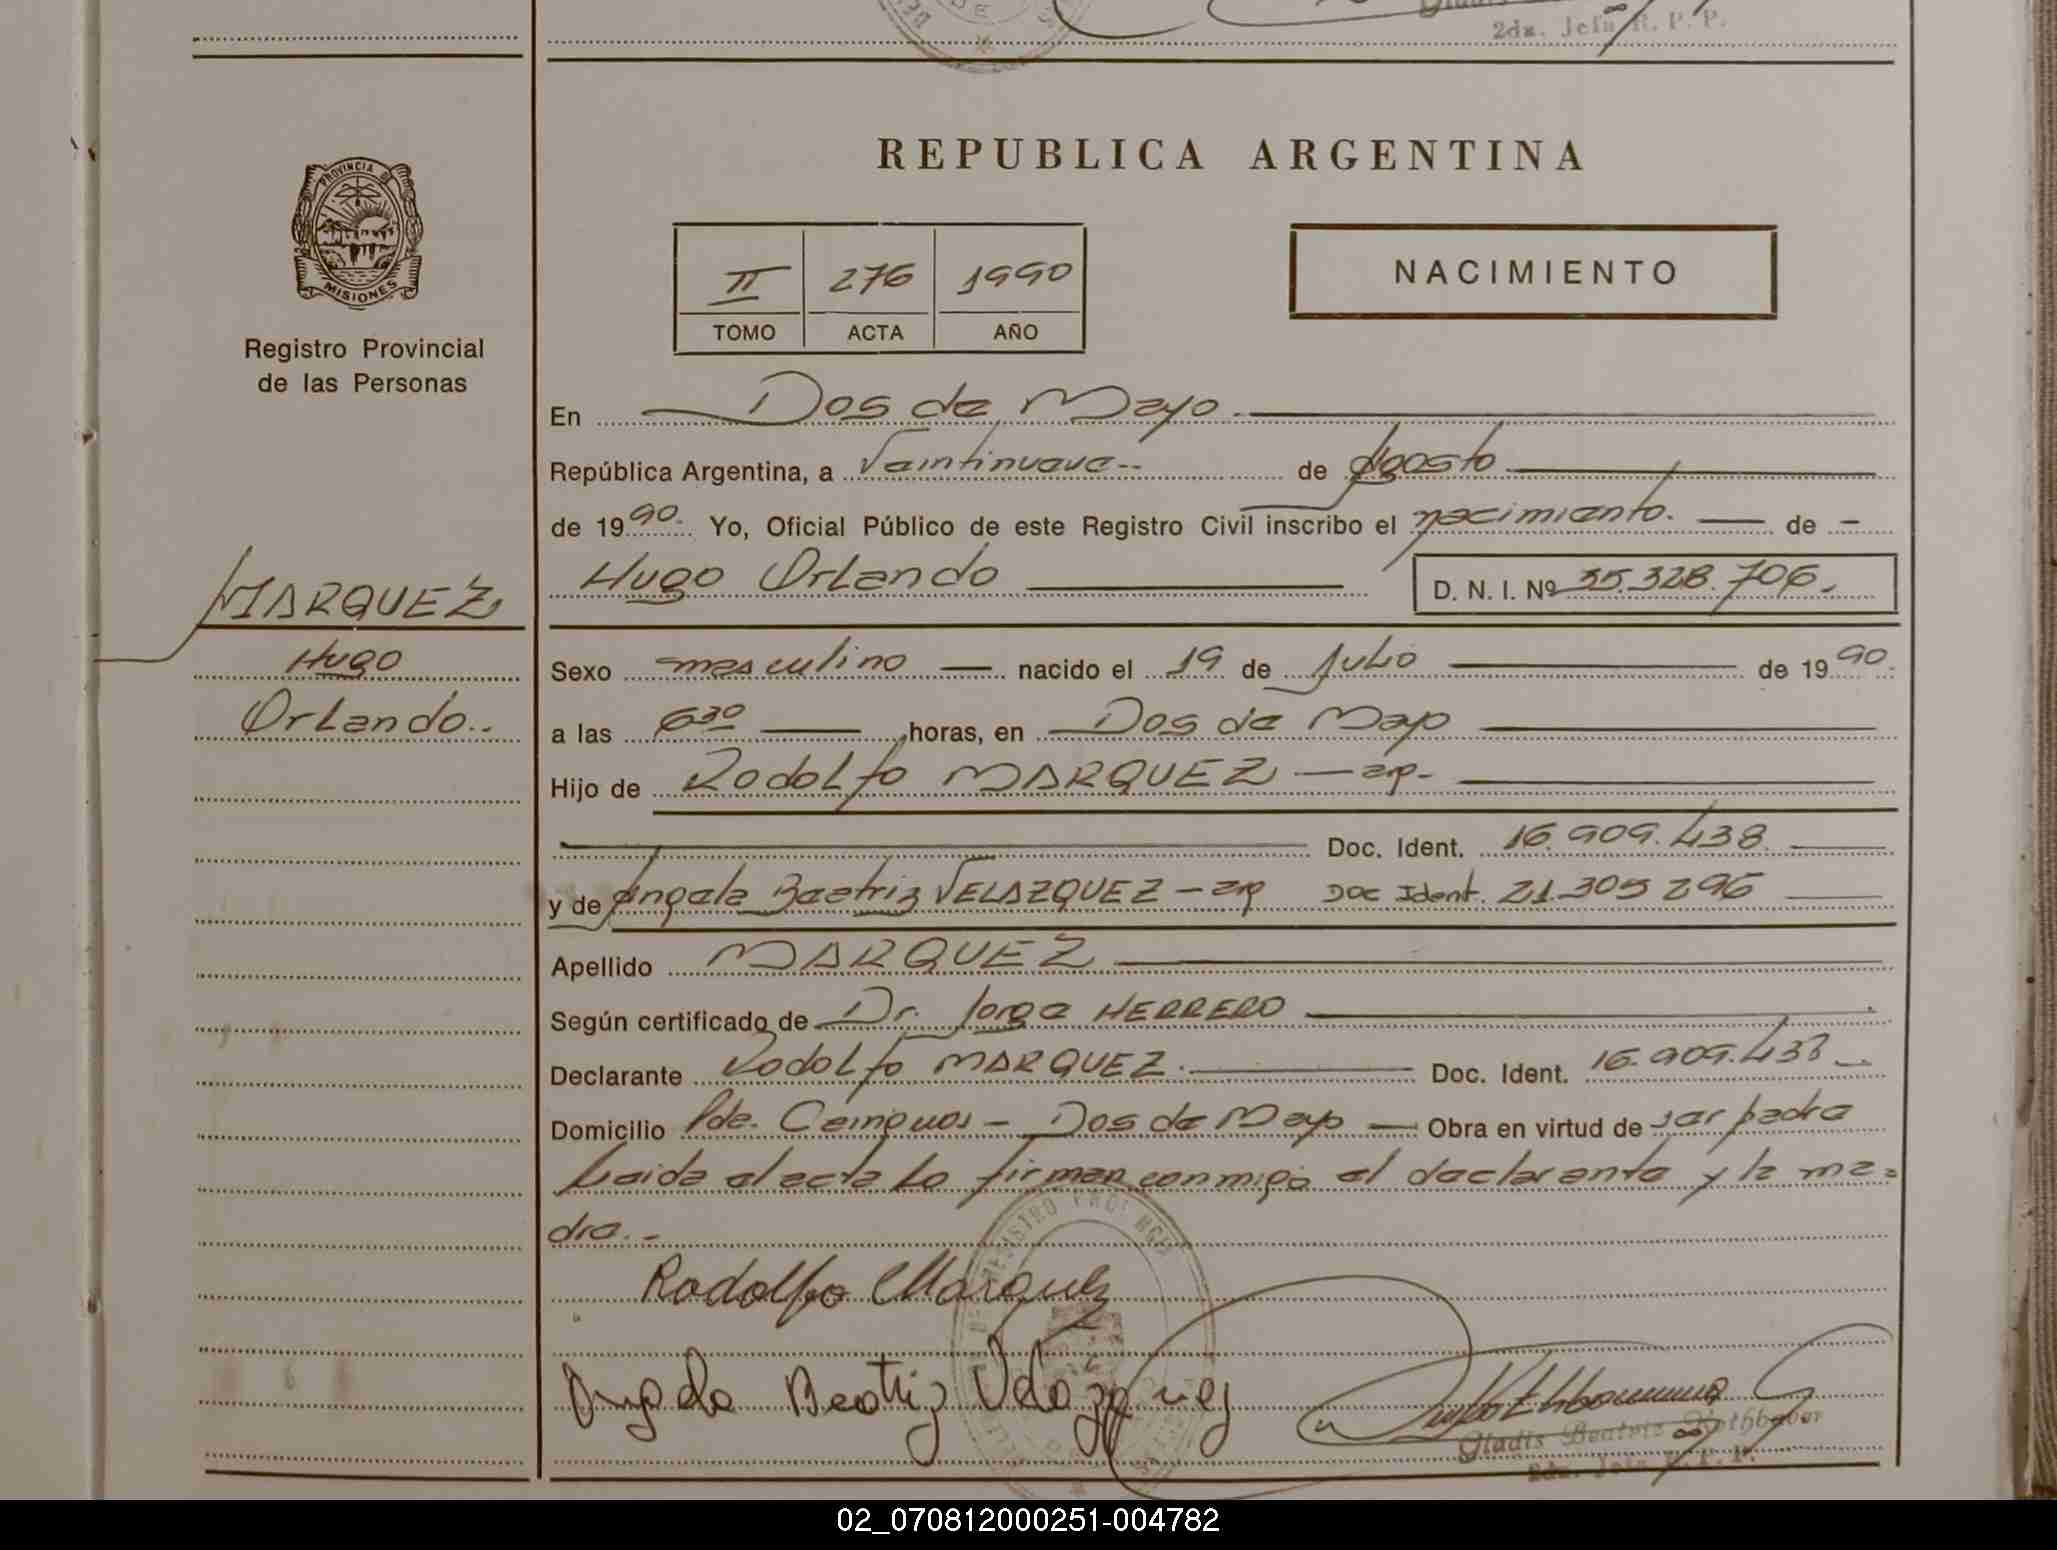 2da. Jefa R. P. P.
REPUBLICA ARGENTINA
PROVINCIA DE
MISIONES
Registro Provincial
de las Personas
II 276 1990
TOMO ACTA AÑO
NACIMIENTO
En Dos de Mayo
República Argentina, a Veintinueve-- de Agosto
de 1990. Yo, Oficial Público de este Registro Civil inscribo el nacimiento. — de —
Hugo Orlando D. N. I. Nº 35.328.706.
MARQUEZ
Hugo
Orlando..
Sexo masculino — nacido el 19 de Julio de 1990.
a las 6 30 horas, en Dos de Mayo
Hijo de Rodolfo MARQUEZ — arg-
Doc. Ident. 16.909.438.
y de Angela Beatriz VELAZQUEZ — arg Doc Ident. 21.305 296
Apellido MARQUEZ
Según certificado de Dr. Jorge HERRERO
Declarante Rodolfo MARQUEZ. Doc. Ident. 16.909.438
Domicilio Pde. Cainguas — Dos de Mayo — Obra en virtud de ser padre
Leida el acta la firman conmigo el declarante y la ma=
dre.-
Rodolfo Marquez
Angela Beatriz Velazquez
Gladis Beatris Rothbaber
2da. Jefa R. P. P.
02_070812000251-004782